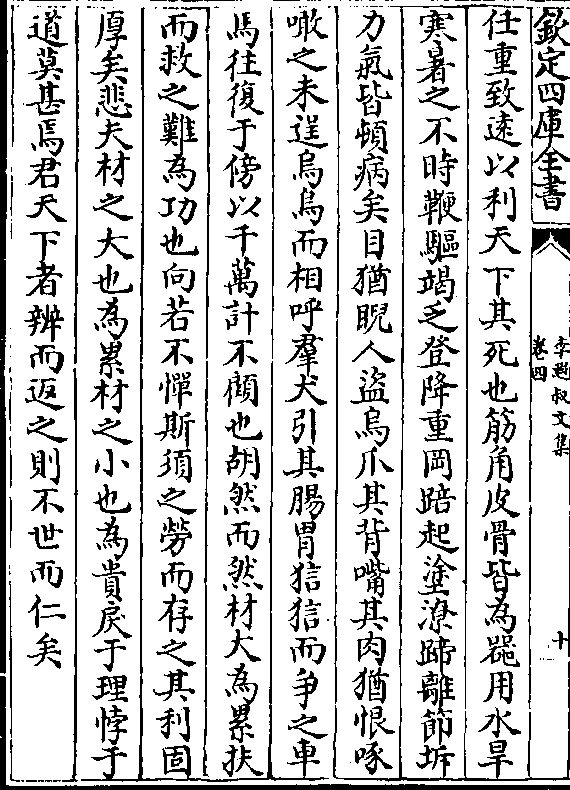 欽定四庫全書
李遐叔文集
卷四
十
任重致遠以利天下其死也筋角皮骨皆為器用水旱
寒暑之不時鞭驅竭乏登降重岡踣起塗潦蹄離節坼
力氣皆頓病矣目猶睨人盜烏爪其背嘴其肉猶恨啄
噉之未逞烏烏而相呼羣犬引其腸胃狺狺而爭之車
馬往復于傍以千萬計不顧也胡然而然材大為累扶
而救之難為功也向若不憚斯須之勞而存之其利固
厚矣悲夫材之大也為累材之小也為貴戾于理悖于
道莫甚焉君天下者辨而返之則不世而仁矣